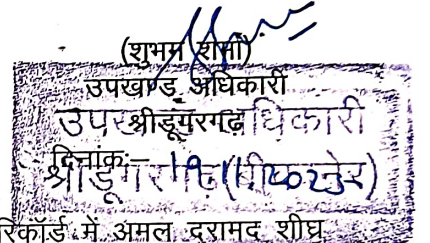 (शुभम शर्मा)
उपखण्ड अधिकारी
श्रीडूंगरगढ़
उपखण्ड अधिकारी
दिनांक:-
श्रीडूंगरगढ़ (बीकानेर)
रिकॉर्ड में अमल दरामद शीघ्र